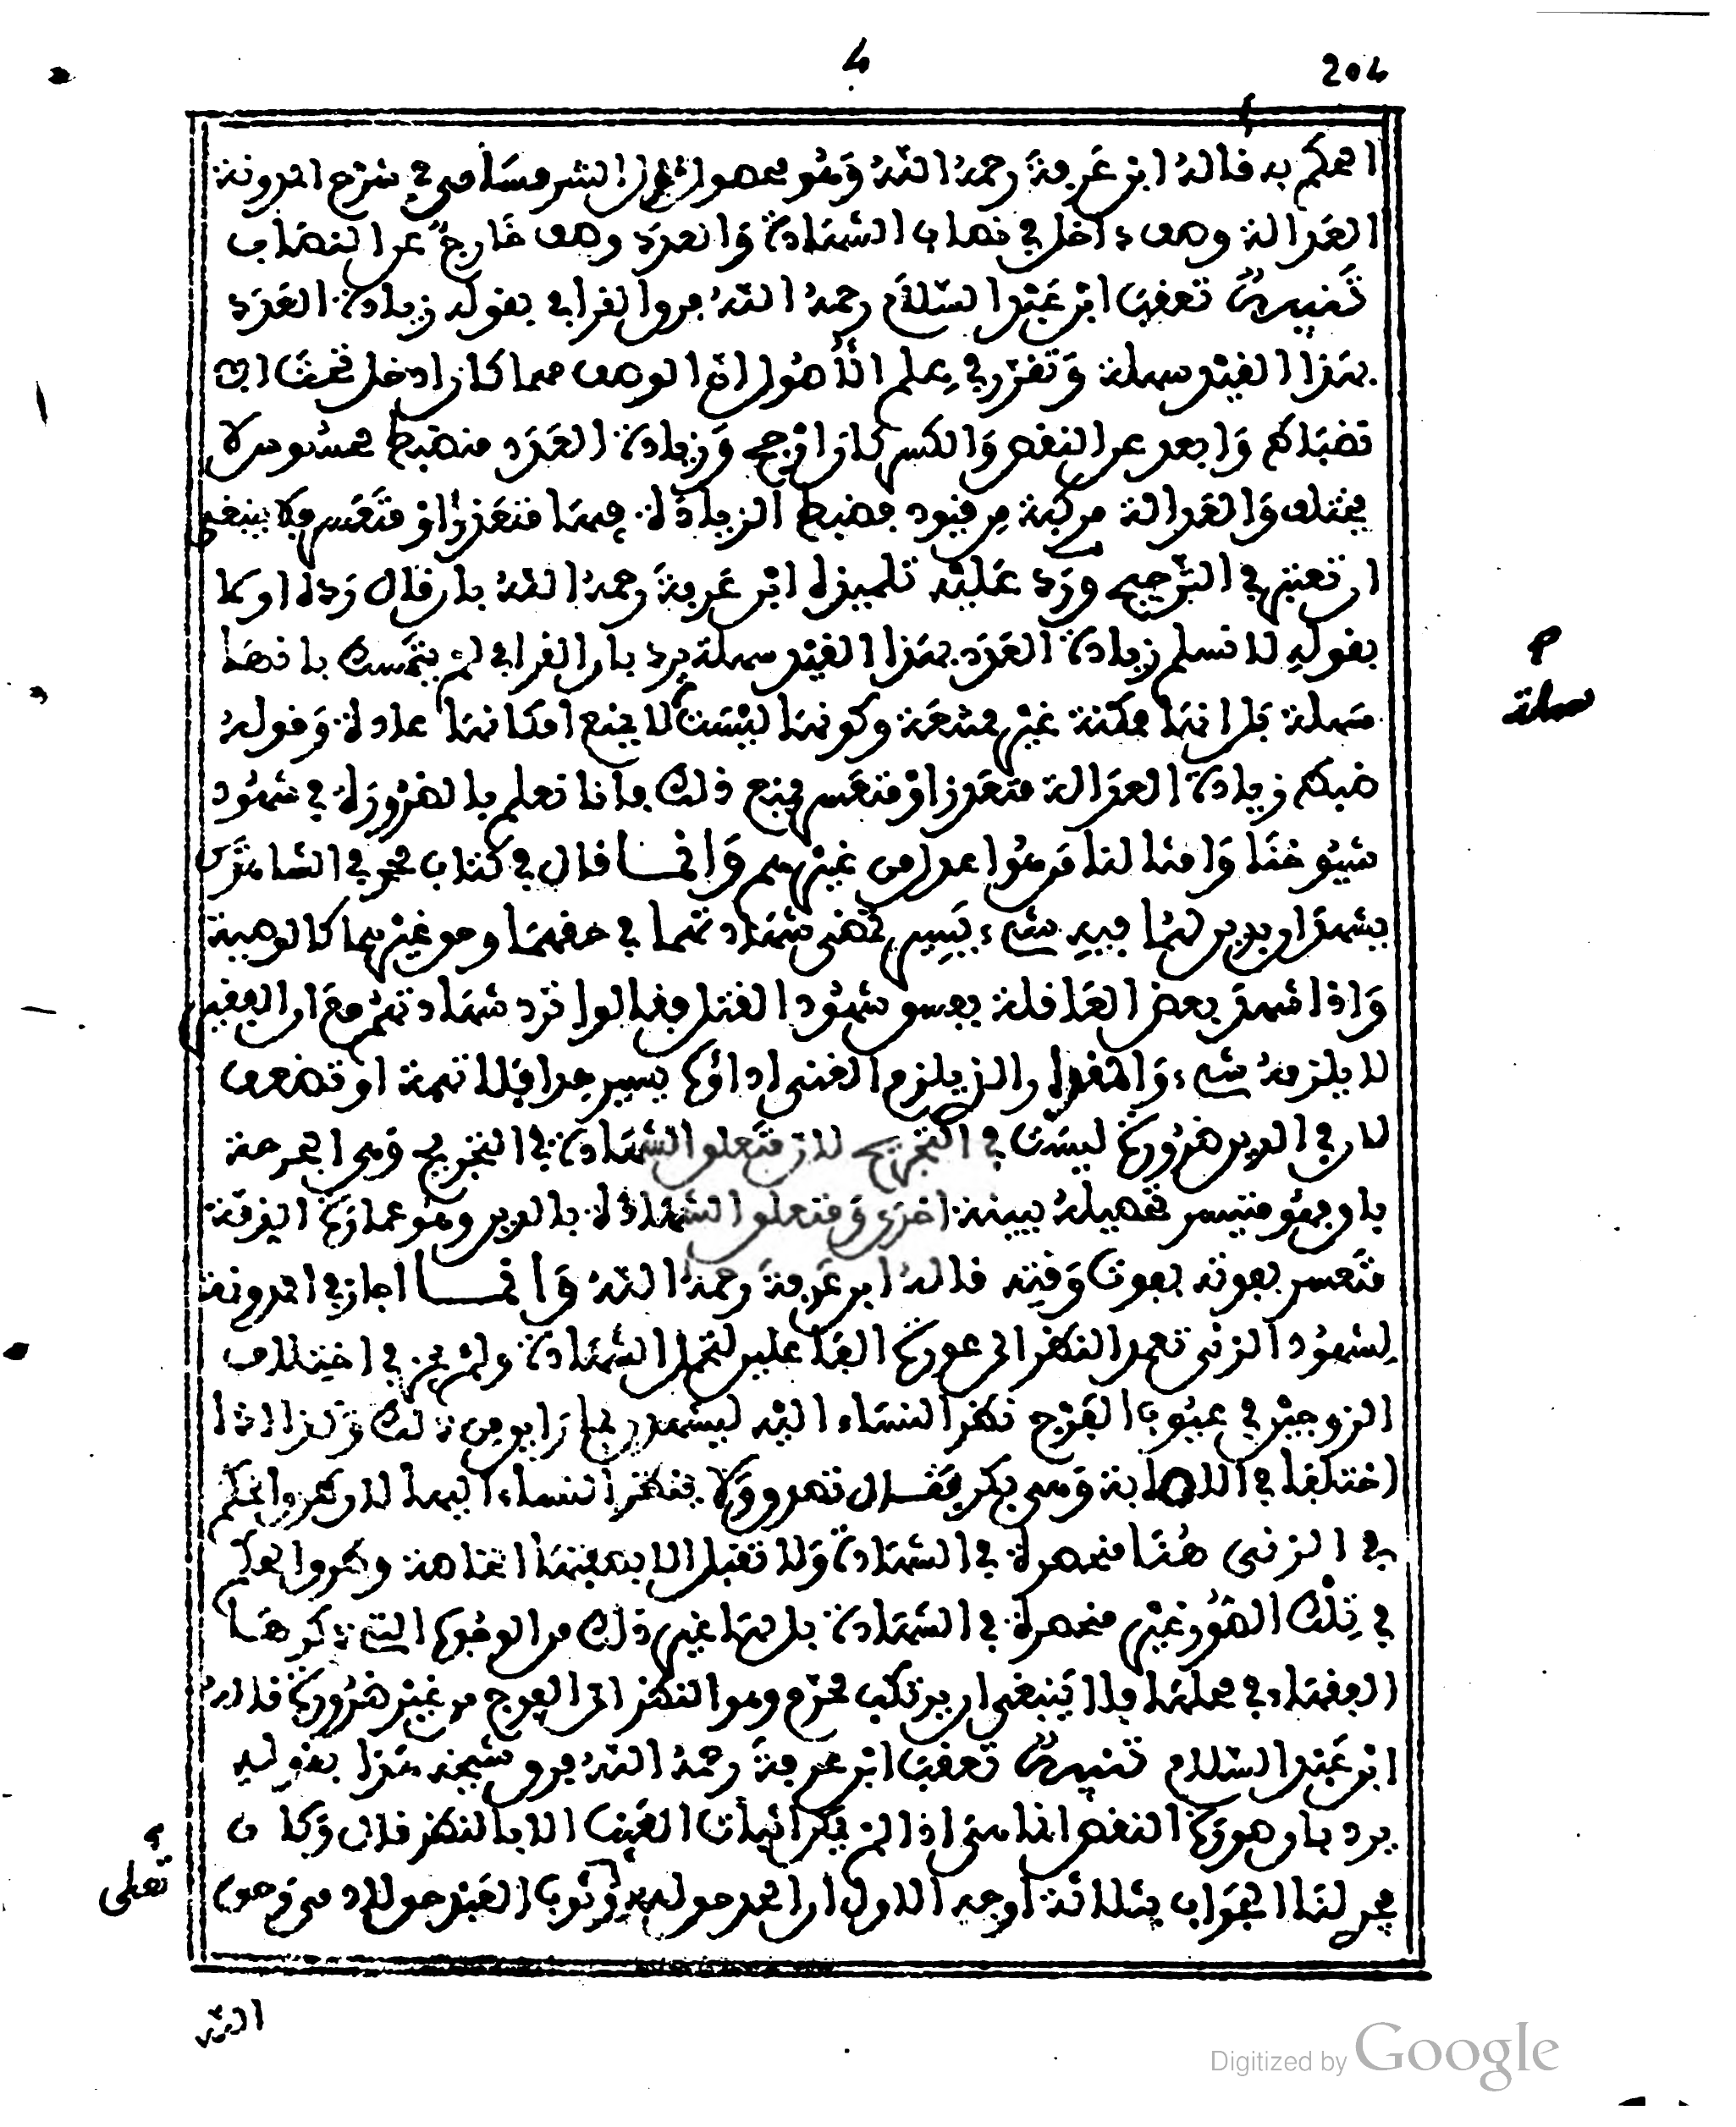 4
204
الحكم به قاله ابن عرفة رحمه الله وهو محصول في شرح المدونة
العدالة وصف داخل في نصاب الشهادة والعدد وصف خارج عن النصاب
تنبيه تعقب ابن عبد السلام رحمه الله فرق القرافي بقوله زيادة العدد
بهذا القيد سهلة وتقرر في علم الأصول أن الوصف مهما كان ادخل تحت
انضباط وابعد عن النقض والكسر كان ارجح وزيادة العدد منضبط محسوس لا
يختلف والعدالة مركبة من قيود فضبط الزيادة فيها متعذر او متعسر فلا ينبغي
ان تعتبر في الترجيح ورد عليه تلميذه ابن عرفة رحمه الله بان قال رده اولا
بقوله لا نسلم زيادة العدد بهذا القيد سهلة يرد بان القرافي لم يتمسك بانها
سهلة بل انها ممكنة غير ممتنعة وكونها ليست لا يمنع امكانها عادة وقوله
ضبط زيادة العدالة متعذر او متعسر يمنع ذلك فانا نعلم بالضرورة في شهود
شيوخنا وامثالنا من هو اعدل من غيرهم وانما قال في كتاب محمد في الشاهدين
يشهدان بدين لهما فيه شيء يسير تمضي شهادتهما في حقهما وحق غيرهما كالوصية
واذا شهد بعض العاقلة بفسق شهود القتل فقالوا ترد شهادتهم مع ان الفقير
لا يلزمه شيء والمقدار الذي يلزم الغني اداؤه يسير جدا فلا تهمة او تضعف
لان في الدين ضرورة ليست في التجريح لان متعلق الشهادة في التجريح وهي الجرحة
باوجهه متيسر تحصيله ببينة اخرى ومتعلق الشهادة بالدين وهو عمارة الذمة
متعسر بفوته بفوت وقته قاله ابن عرفة رحمه الله وانما اجاز في المدونة
لشهود الزنى تعمد النظر الى عورة الفاعلين لتحمل الشهادة ولم يجز في اختلاف
الزوجين في عيوب الفرج نظر النساء اليه ليشهدن بما رايهن من ذلك وكذا اذا
اختلفا في الاصابة وهي بكر فقال تصدق ولا ينظر النساء اليها لان طريق الحكم
في الزنى هنا منحصرة في الشهادة ولا تقبل الا بصفتها الخاصة وطرق الحكم
في تلك الصور غير منحصرة في الشهادة بل لها غير ذلك من الوجوه التي ذكرها
الفقهاء في محلها فلا ينبغي ان يرتكب محرم وهو النظر الى الفرج من غير ضرورة قاله
ابن عبد السلام تنبيه تعقب ابن عرفة رحمه الله فرق شيخه هذا بقوله
يرد بان صورة النقض انما هي اذا لم يكن اثبات العيب الا بالنظر قال وكان
يجري لنا الجواب بثلاثة اوجه الاول ان الحد حق لله وثوب العبد حق لآدمي وحق
سهلة
تعلى
الله
Digitized by Google